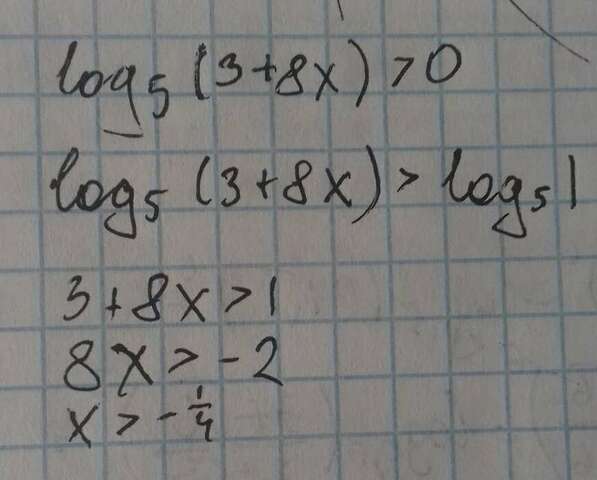 log₅(3+8x)>0
log₅(3+8x)>log₅1
3+8x>1
8x>-2
x>-1/4